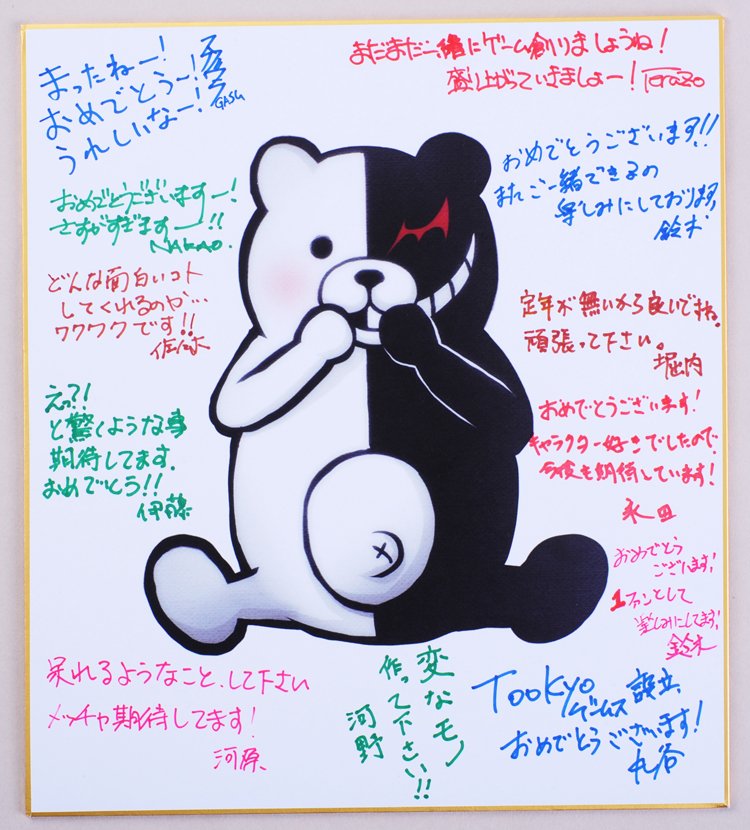 まったねー!
おめでとうー!
うれしいなー!
GASU
まだまだ一緒にゲーム創りましょうね!
盛り上がっていきましょー! TeraZo
おめでとうございますー!
さすがすぎますー!!
NAKAO.
おめでとうございます!!
またご一緒できるの
楽しみにしております
鈴木
どんな面白いコト
してくれるのか…
ワクワクです!!
佐々木
定年が無いから良いですね。
頑張って下さい。
堀内
えっ?!
と驚くような事
期待してます.
おめでとう!!
伊藤
おめでとうございます!
キャラクター好きでしたので、
今後も期待しています!
永田
おめでとう
ございます!
1ファンとして
楽しみにしてます!
鈴木
呆れるようなこと、して下さい
メッチャ期待してます!
河原
変なモノ
作って下さい!!
河野
TOOKYO
ゲームス 設立
おめでとうございます!
丸谷